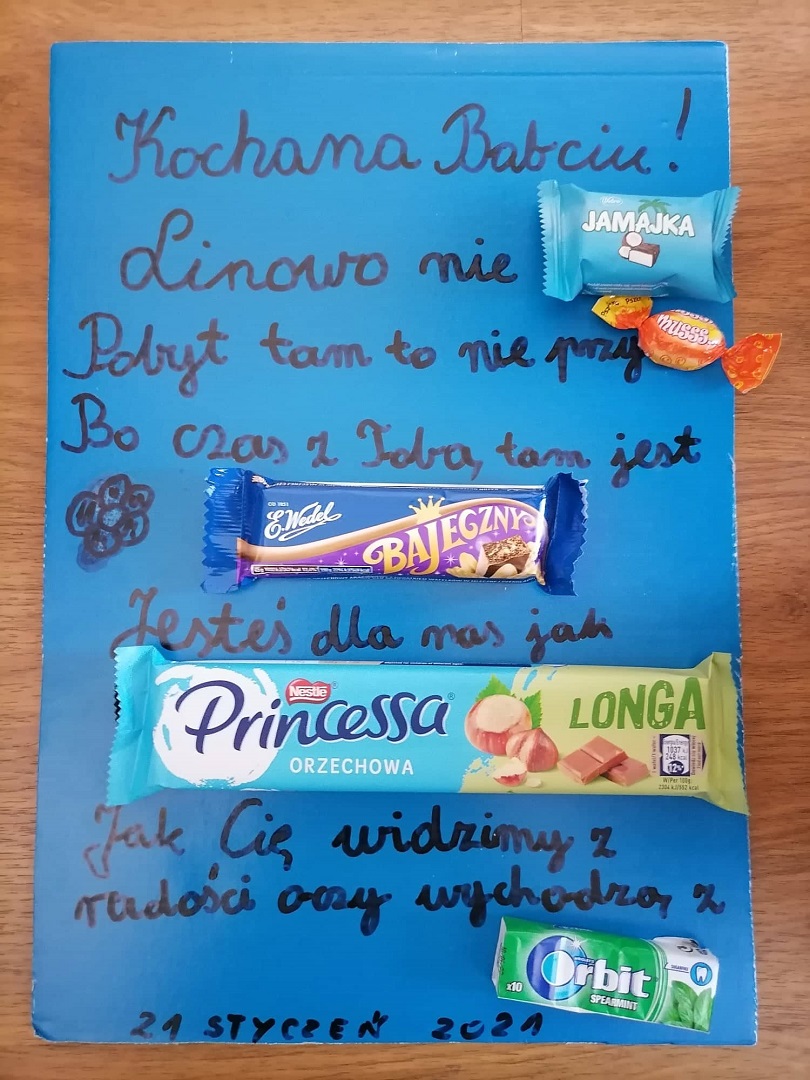 Kochana Babciu!
Linowo nie JAMAJKA
Pobyt tam to nie przy musss
Bo czas z Tobą tam jest
CO 1851
E.Wedel BAJECZNY
Jesteś dla nas jak
Nestlé
Princessa LONGA
ORZECHOWA
Jak Cię widzimy z
radości oczy wychodzą z
Orbit
x10 SPEARMINT
21 STYCZEŃ 2021